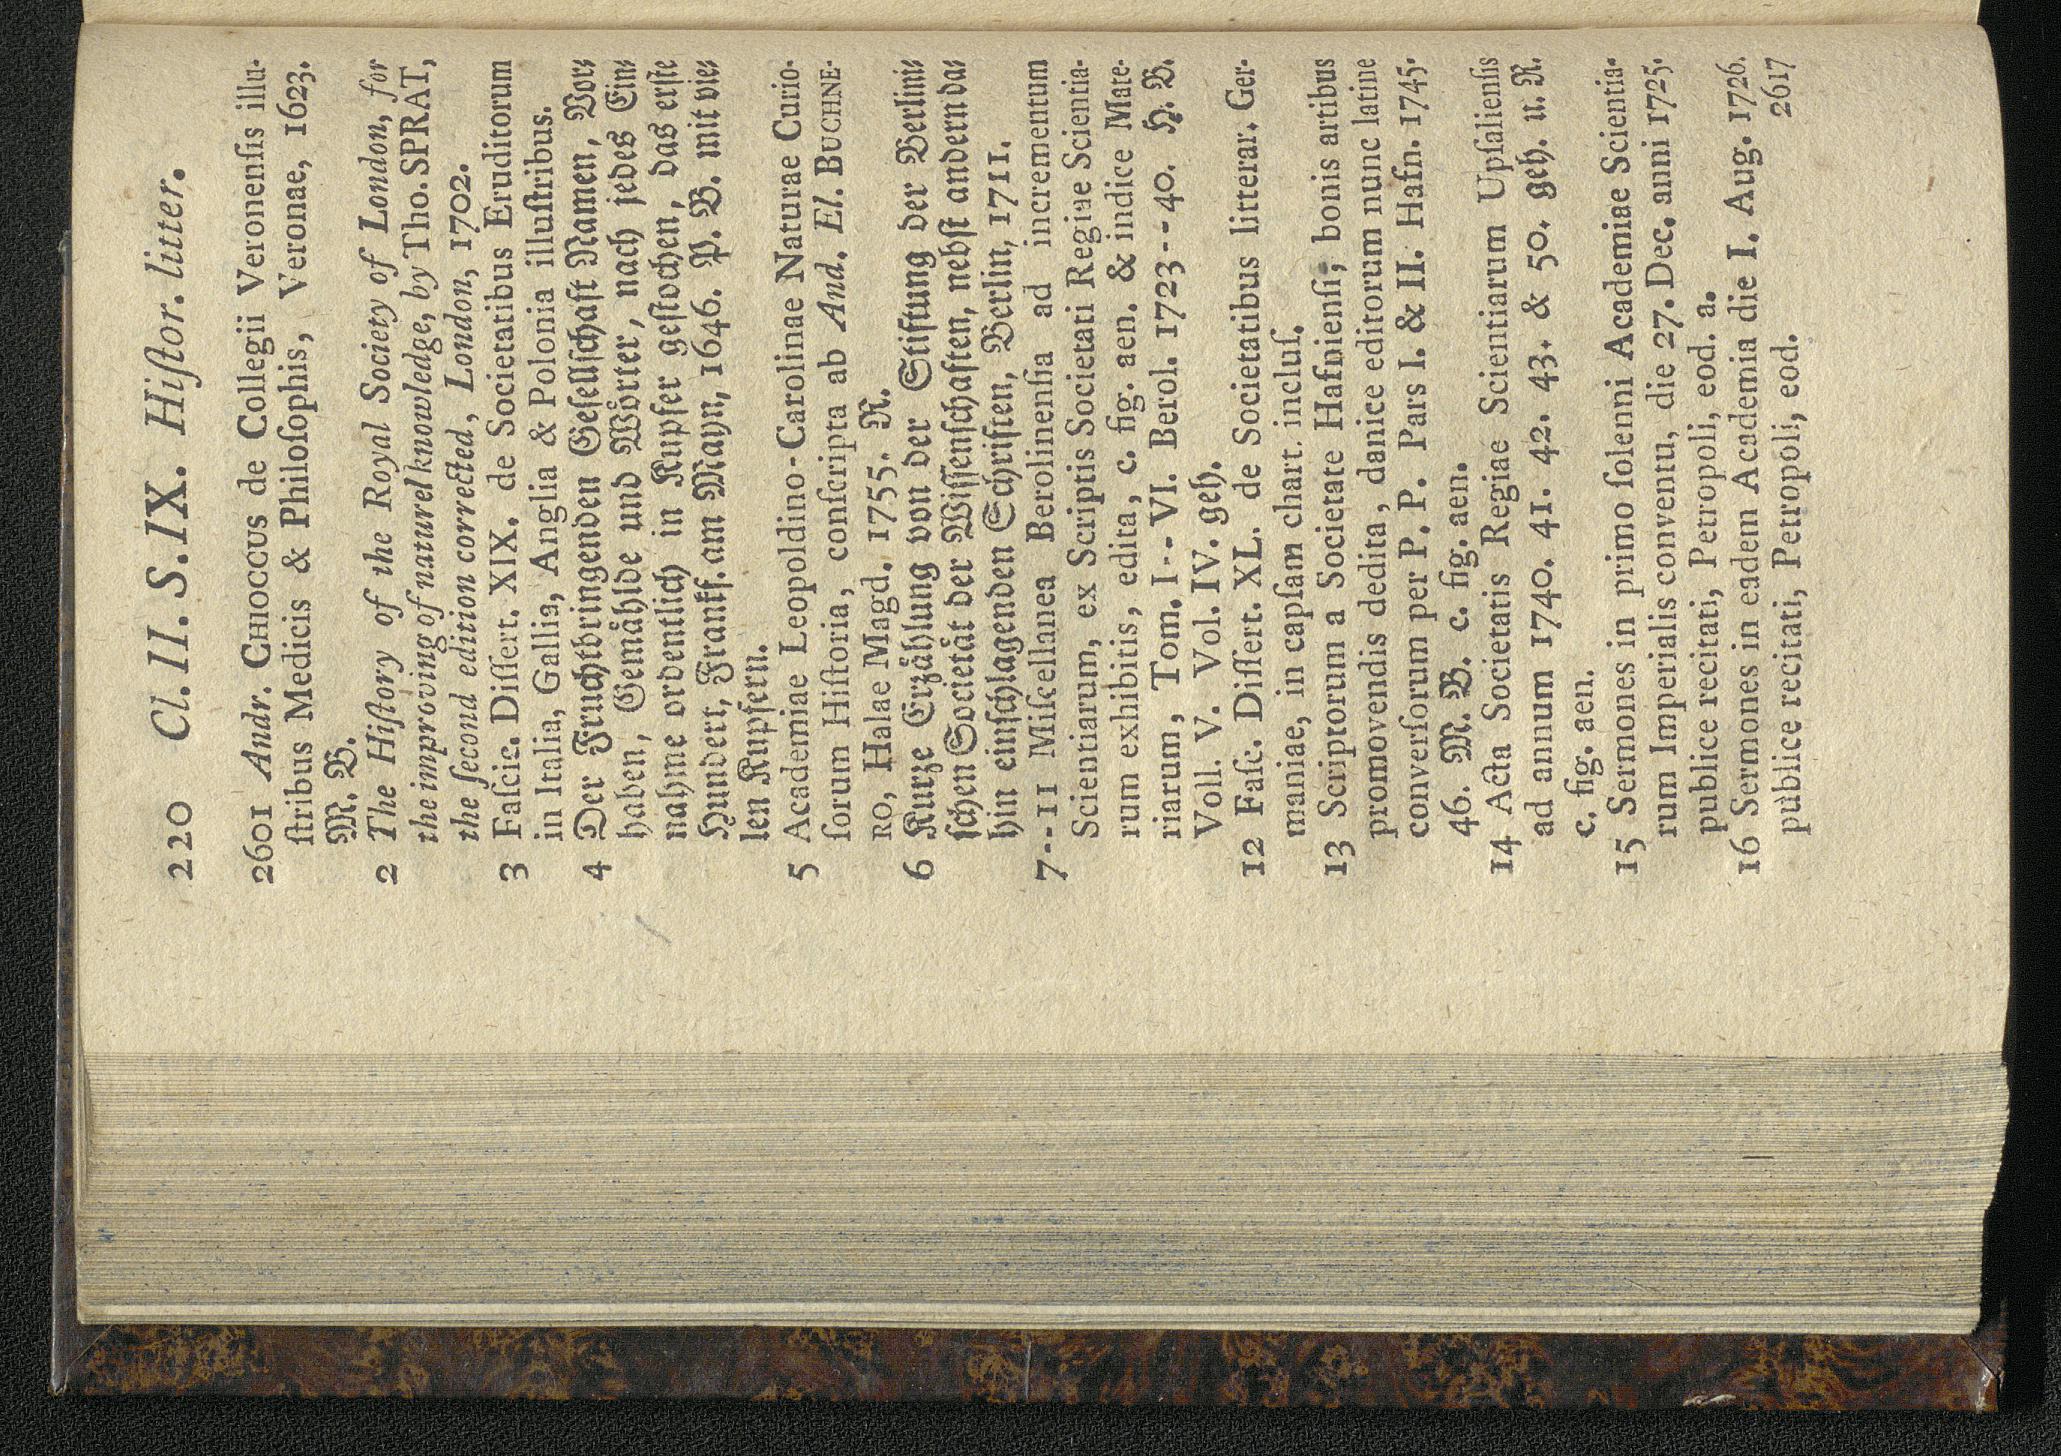 220 Cl. II. S. IX. Hiſtor. litter.
2601 Andr. CHIOCCUS de Collegii Veronenſis illu-
ſtribus Medicis & Philoſophis, Veronae, 1623.
M. B.
2 The Hiſtory of the Royal Society of London, for
the improving of naturel knowledge, by Tho. SPRAT,
the ſecond edition corrected, London, 1702.
3 Faſcic. Diſſert. XIX. de Societatibus Eruditorum
in Italia, Gallia, Anglia & Polonia illuſtribus.
4 Der Fruchtbringenden Geſellſchaft Namen, Vor-
haben, Gemählde und Wörter, nach jedes Ein-
nahme ordentlich in Kupfer geſtochen, das erſte
Hundert, Frankf. am Mayn, 1646. P. B. mit vie-
len Kupfern.
5 Academiae Leopoldino-Carolinae Naturae Curio-
ſorum Hiſtoria, conſcripta ab And. El. BUCHNE-
RO, Halae Magd. 1755. R.
6 Kurze Erzählung von der Stiftung der Berlini-
ſchen Societät der Wiſſenſchaften, nebſt andern da-
hin einſchlagenden Schriften, Berlin, 1711.
7--11 Miſcellanea Berolinenſia ad incrementum
Scientiarum, ex Scriptis Societati Regiae Scientia-
rum exhibitis, edita, c. fig. aen. & indice Mate-
riarum, Tom. I-- VI. Berol. 1723--40. H. B.
Voll. V. Vol. IV. geh.
12 Faſc. Diſſert. XL. de Societatibus litterar. Ger-
maniae, in capſam chart. incluſ.
13 Scriptorum a Societate Hafnienſi, bonis artibus
promovendis dedita, danice editorum nunc latine
converſorum per P. P. Pars I. & II. Hafn. 1745.
46. M. B. c. fig. aen.
14 Acta Societatis Regiae Scientiarum Upſalienſis
ad annum 1740. 41. 42. 43. & 50. geh. u. R.
c. fig. aen.
15 Sermones in primo ſolenni Academiae Scientia-
rum Imperialis conventu, die 27. Dec. anni 1725.
publice recitati, Petropoli, eod. a.
16 Sermones in eadem Academia die I. Aug. 1726.
publice recitati, Petropoli, eod.
2617